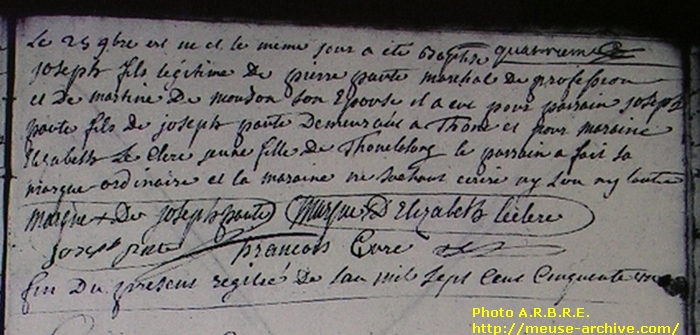 Le 25 9bre est ne et le meme jour a été Baptise
joseph fils légitime de pierre parte maréchal de profession
et de martine De moudon son Epouse il a eut pour parrain joseph
parte fils de joseph parte Demeurant a Thone et pour maraine
Elizabeth Le Clerc jeune fille de Thonelalong le parrain a fait sa
marque ordinaire et la maraine ne sachant ecrire ny l'un ny l'autre
marque + De joseph parte Marque D'Elizabeth leclere
joseph francois Cure
fin Du present registre De l'an mil sept Cent Cinquante
Photo A.R.B.R.E.
http://meuse-archive.com/